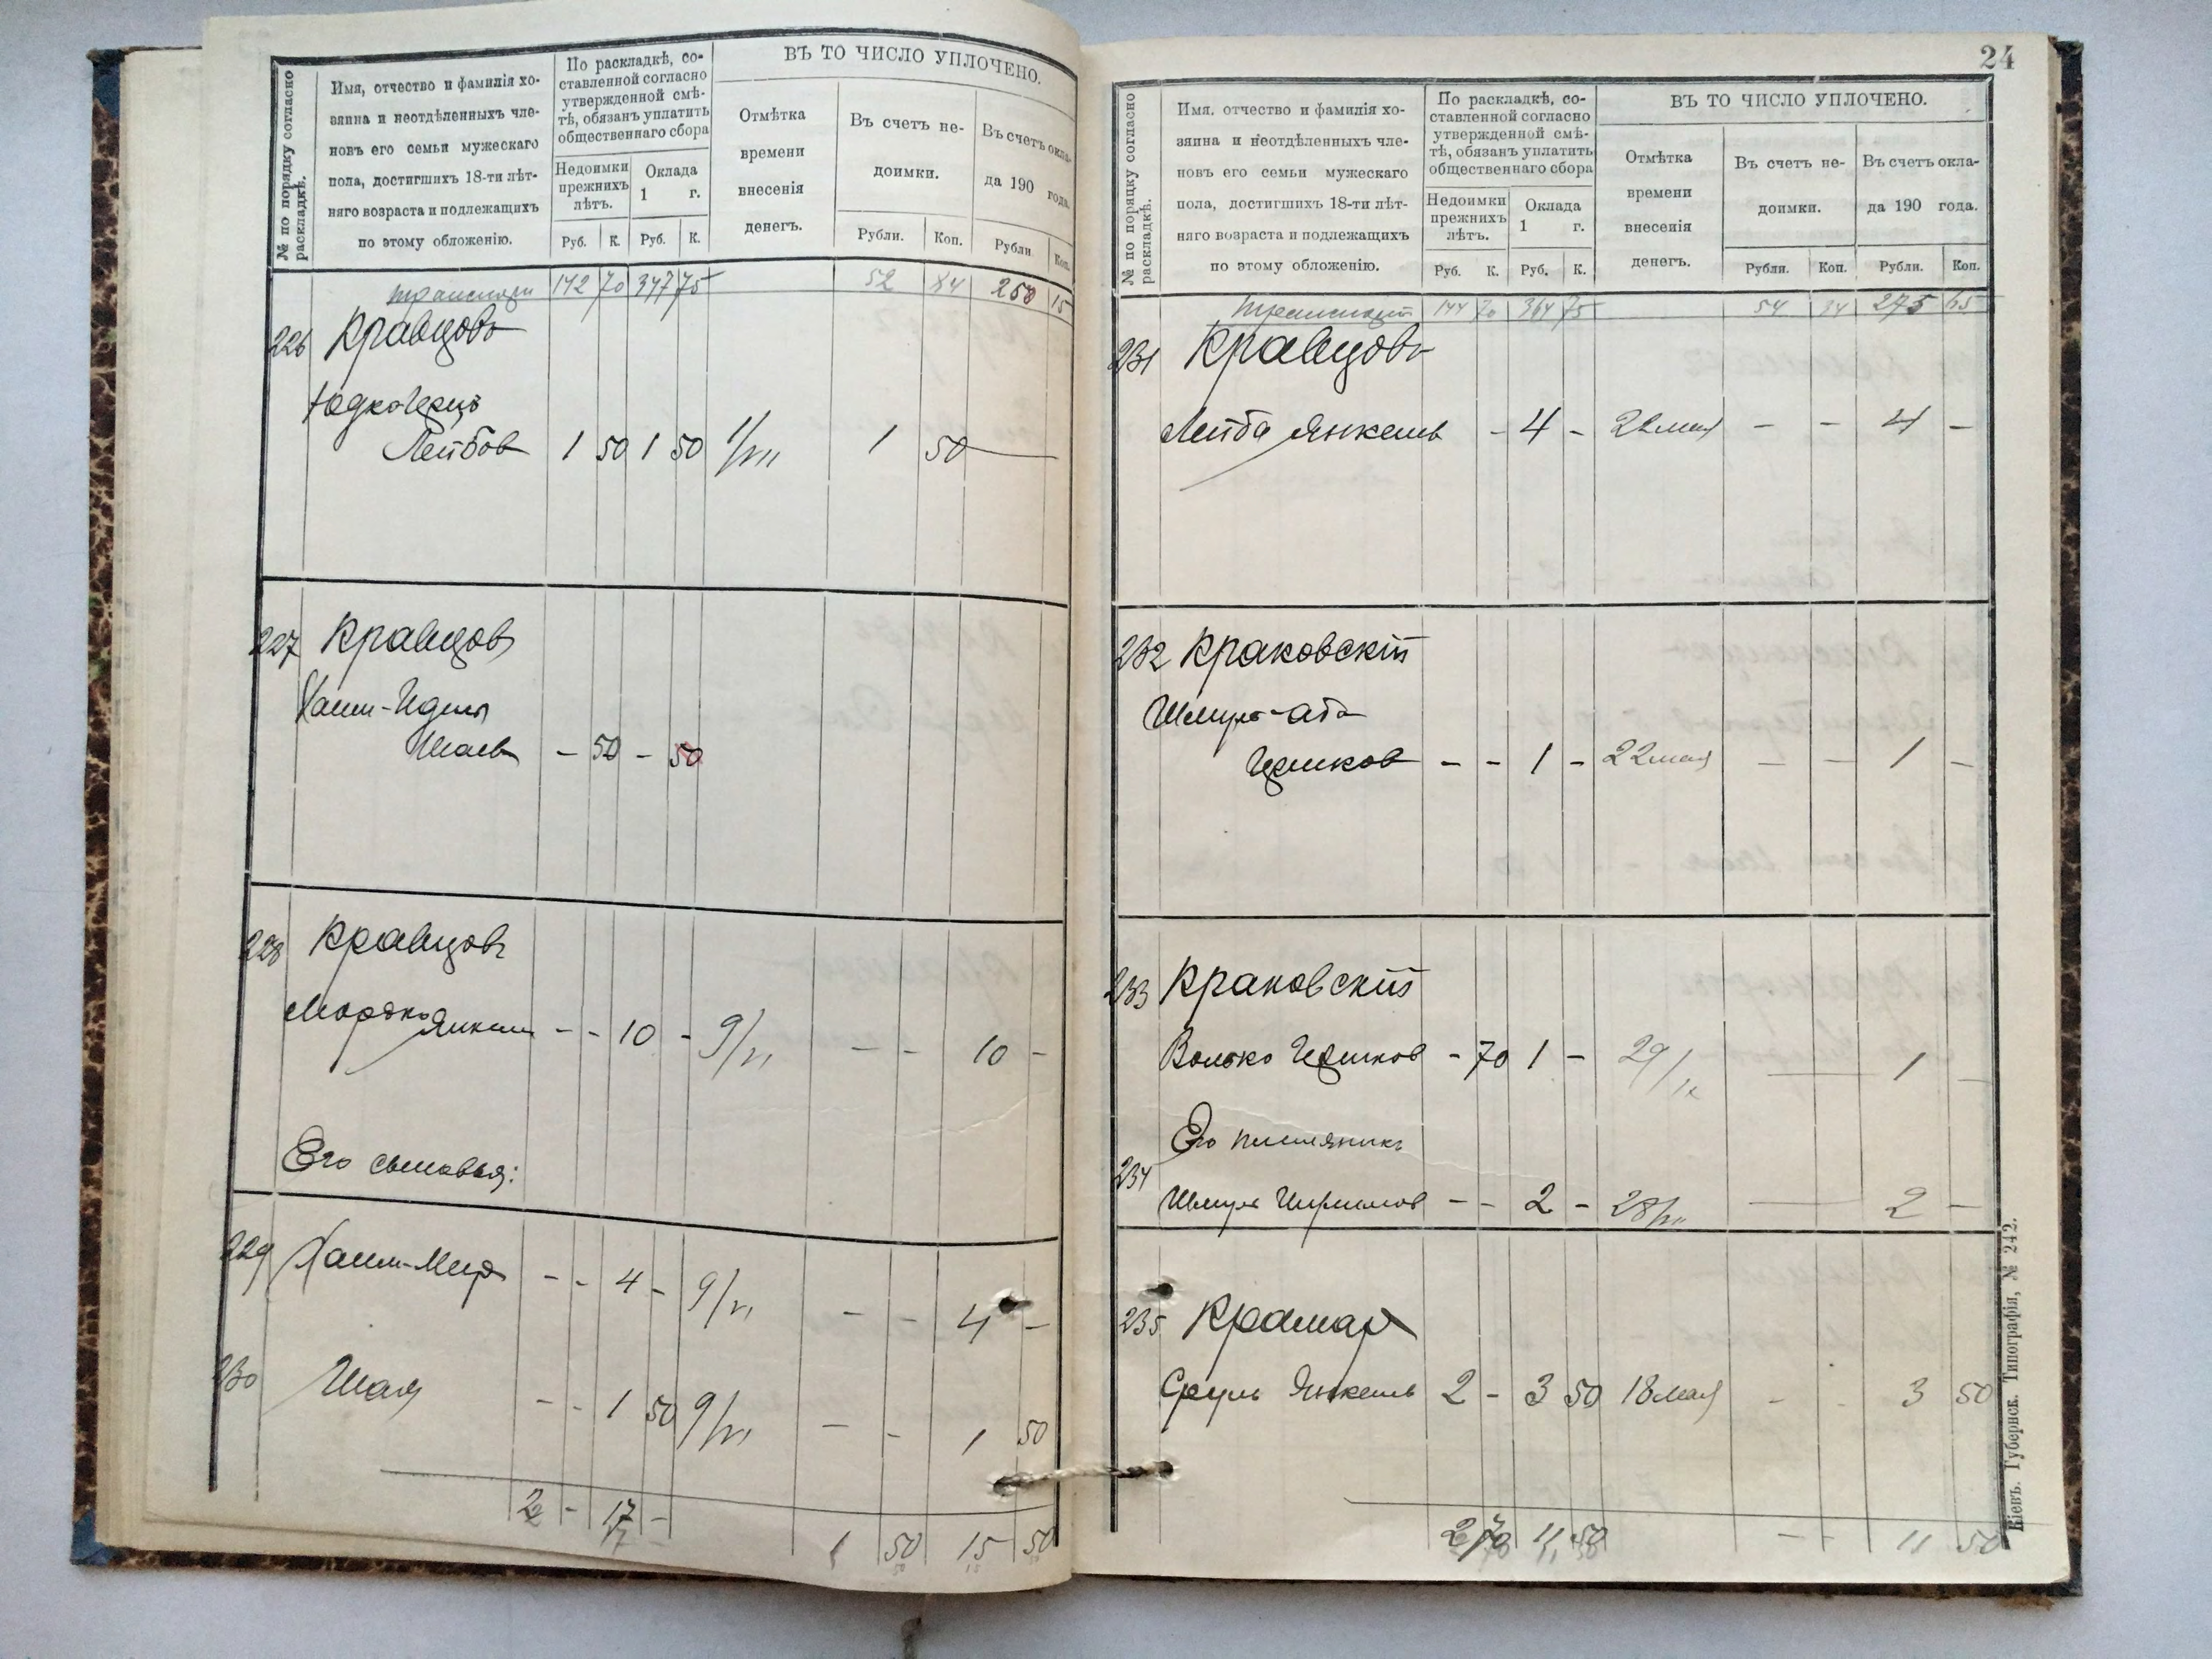 № по порядку согласно
раскладкѣ.
Имя, отчество и фамилія хо-
зяина и неотдѣленныхъ чле-
новъ его семьи мужескаго
пола, достигшихъ 18-ти лѣт-
няго возраста и подлежащихъ
по этому обложенію.
По раскладкѣ, со-
ставленной согласно
утвержденной смѣ-
тѣ, обязанъ уплатить
общественнаго сбора
Недоимки
прежнихъ
лѣтъ.
Оклада
1 г.
Руб. К. Руб. К.
ВЪ ТО ЧИСЛО УПЛОЧЕНО.
Отмѣтка
времени
внесенія
денегъ.
Въ счетъ не-
доимки.
Рубли. Коп.
Въ счетъ окла-
да 190 года.
Рубли Коп.
142 70 347 75 52 84 258 15
226 Кравцовъ
Лейбов 1 50 1 50 1/VII 1 50 —
227 Кравцов
Хаим-Идель
Шаев - 50 - 50
228 Кравцовъ
Мордко Янкел - - 10 - 9/VI - - 10 -
Его сыновья:
229 Хаим-Меер - - 4 - 9/VI - - 4 -
230 Шая - - 1 50 9/VI - - 1 50
2 - 17 - 1 50 15 50
24
№ по порядку согласно
раскладкѣ.
Имя. отчество и фамилія хо-
зяина и неотдѣленныхъ чле-
новъ его семьи мужескаго
пола, достигшихъ 18-ти лѣт-
няго возраста и подлежащихъ
по этому обложенію.
По раскладкѣ, со-
ставленной согласно
утвержденной смѣ-
тѣ, обязанъ уплатить
общественнаго сбора
Недоимки
прежнихъ
лѣтъ.
Оклада
1 г.
Руб. К. Руб. К.
ВЪ ТО ЧИСЛО УПЛОЧЕНО.
Отмѣтка
времени
внесенія
денегъ.
Въ счетъ не-
доимки.
Рубли. Коп.
Въ счетъ окла-
да 190 года.
Рубли. Коп.
Транспорт 144 70 364 75 54 34 273 65
231 Кравцовъ
Лейба Янкелев - 4 - 22 мая - - 4 -
232 Краковскій
Шмуль-Аба
Ицков - - 1 - 22 мая - - 1 -
233 Краковскій
Волько Ицков - 70 1 - 29/IX — 1 -
Его племяникъ
234 Шмуль - - 2 - 28/VII — 2 -
235 Крамар
Сруль Янкелев 2 - 3 50 18 мая - - 3 50
2 70 11 50 - - 11 50
Кіевъ. Губернск. Типографія, № 242.